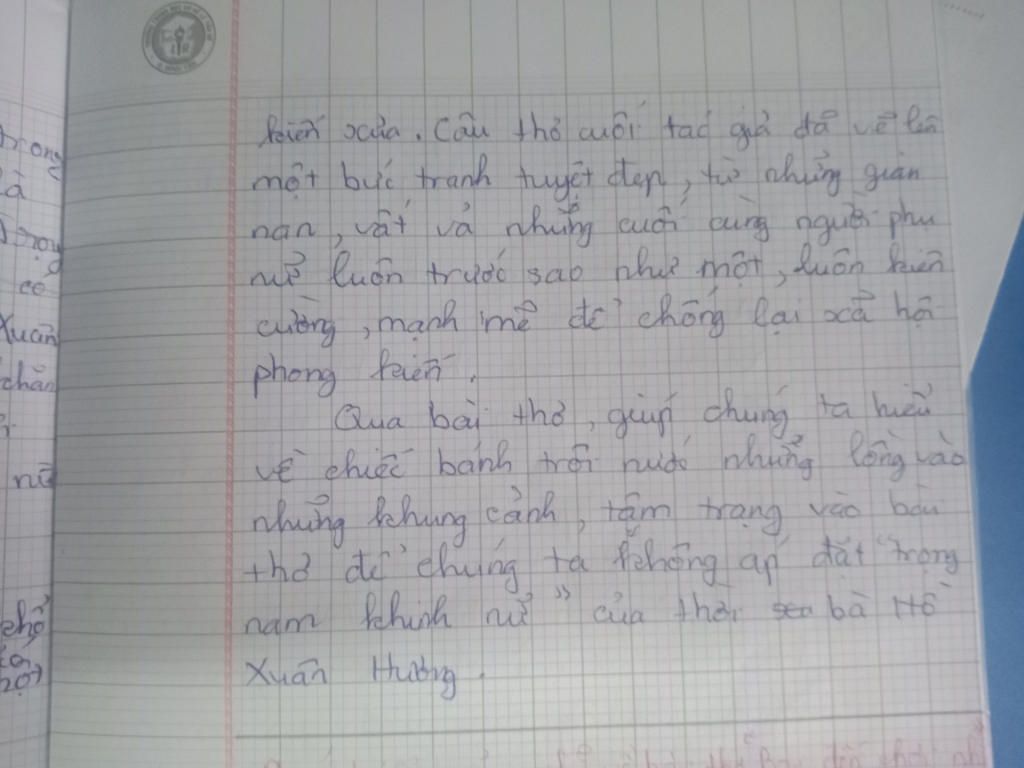 Trong
là
Trong
có
Xuân
chân
nữ
phố
kiến xưa. Câu thơ cuối tác giả đã vẽ lên
một bức tranh tuyệt đẹp, từ những gian
nan, vất vả nhưng cuối cùng người phụ
nữ luôn trước sao như một, luôn kiên
cường, mạnh mẽ để chống lại xã hội
phong kiến.
Qua bài thơ, giúp chúng ta hiểu
về chiếc bánh trôi nước những lồng vào
những khung cảnh, tâm trạng vào bài
thơ để chúng ta không áp đặt "trọng
nam khinh nữ" của thời bà Hồ
Xuân Hương.